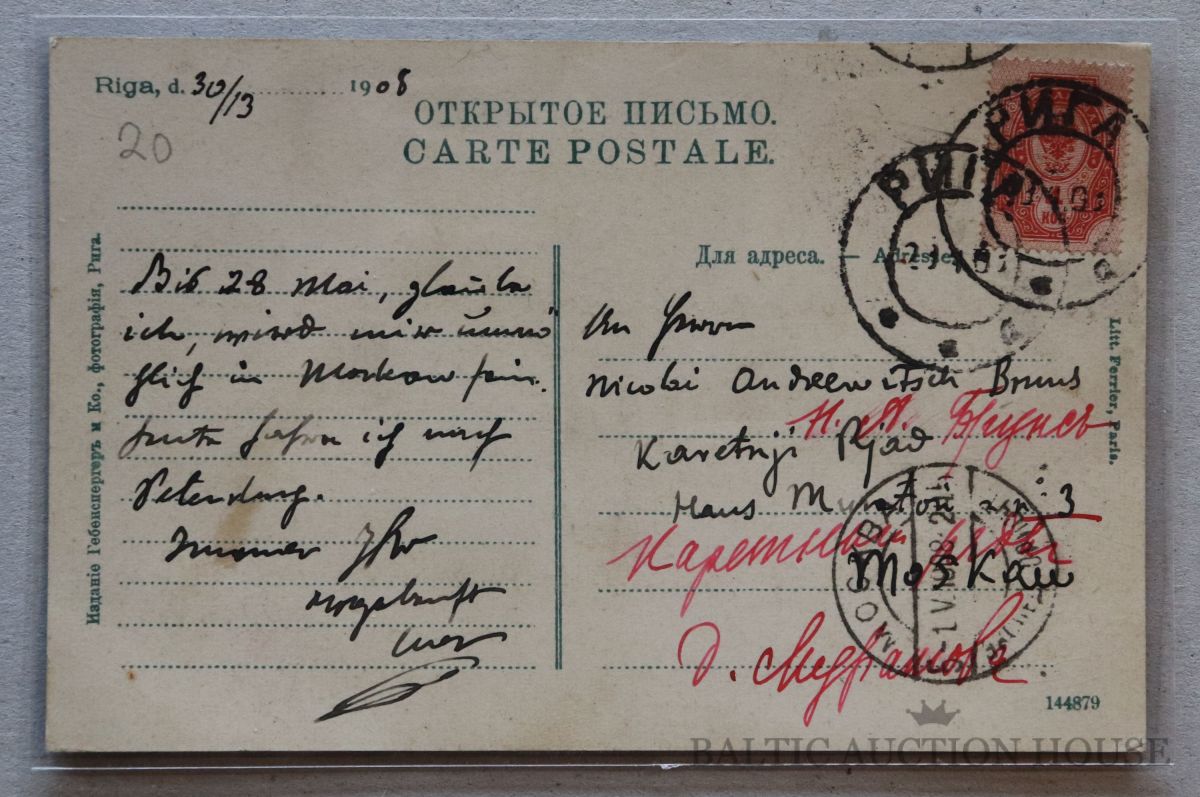 Riga, d. 30/13 1908
20
ОТКРЫТОЕ ПИСЬМО.
CARTE POSTALE.
РИГА
РИГА
Для адреса. — Adresse.
Изданіе Гебенспергеръ и Ко., фотографія, Рига.
Bis 28 Mai, glaube
ich, wird mir unmö
glich in Moskau sein.
Heute fahre ich nach
Petersburg.
Immer Ihr
An Herrn
Nicolai Andreewitsch Bruns
Н. А. Брунсъ
Karetnji Rjad
Haus № 3
Каретный рядъ
Moskau
МОСКВА
д.
Litt. Ferrier, Paris.
144879
BALTIC AUCTION HOUSE